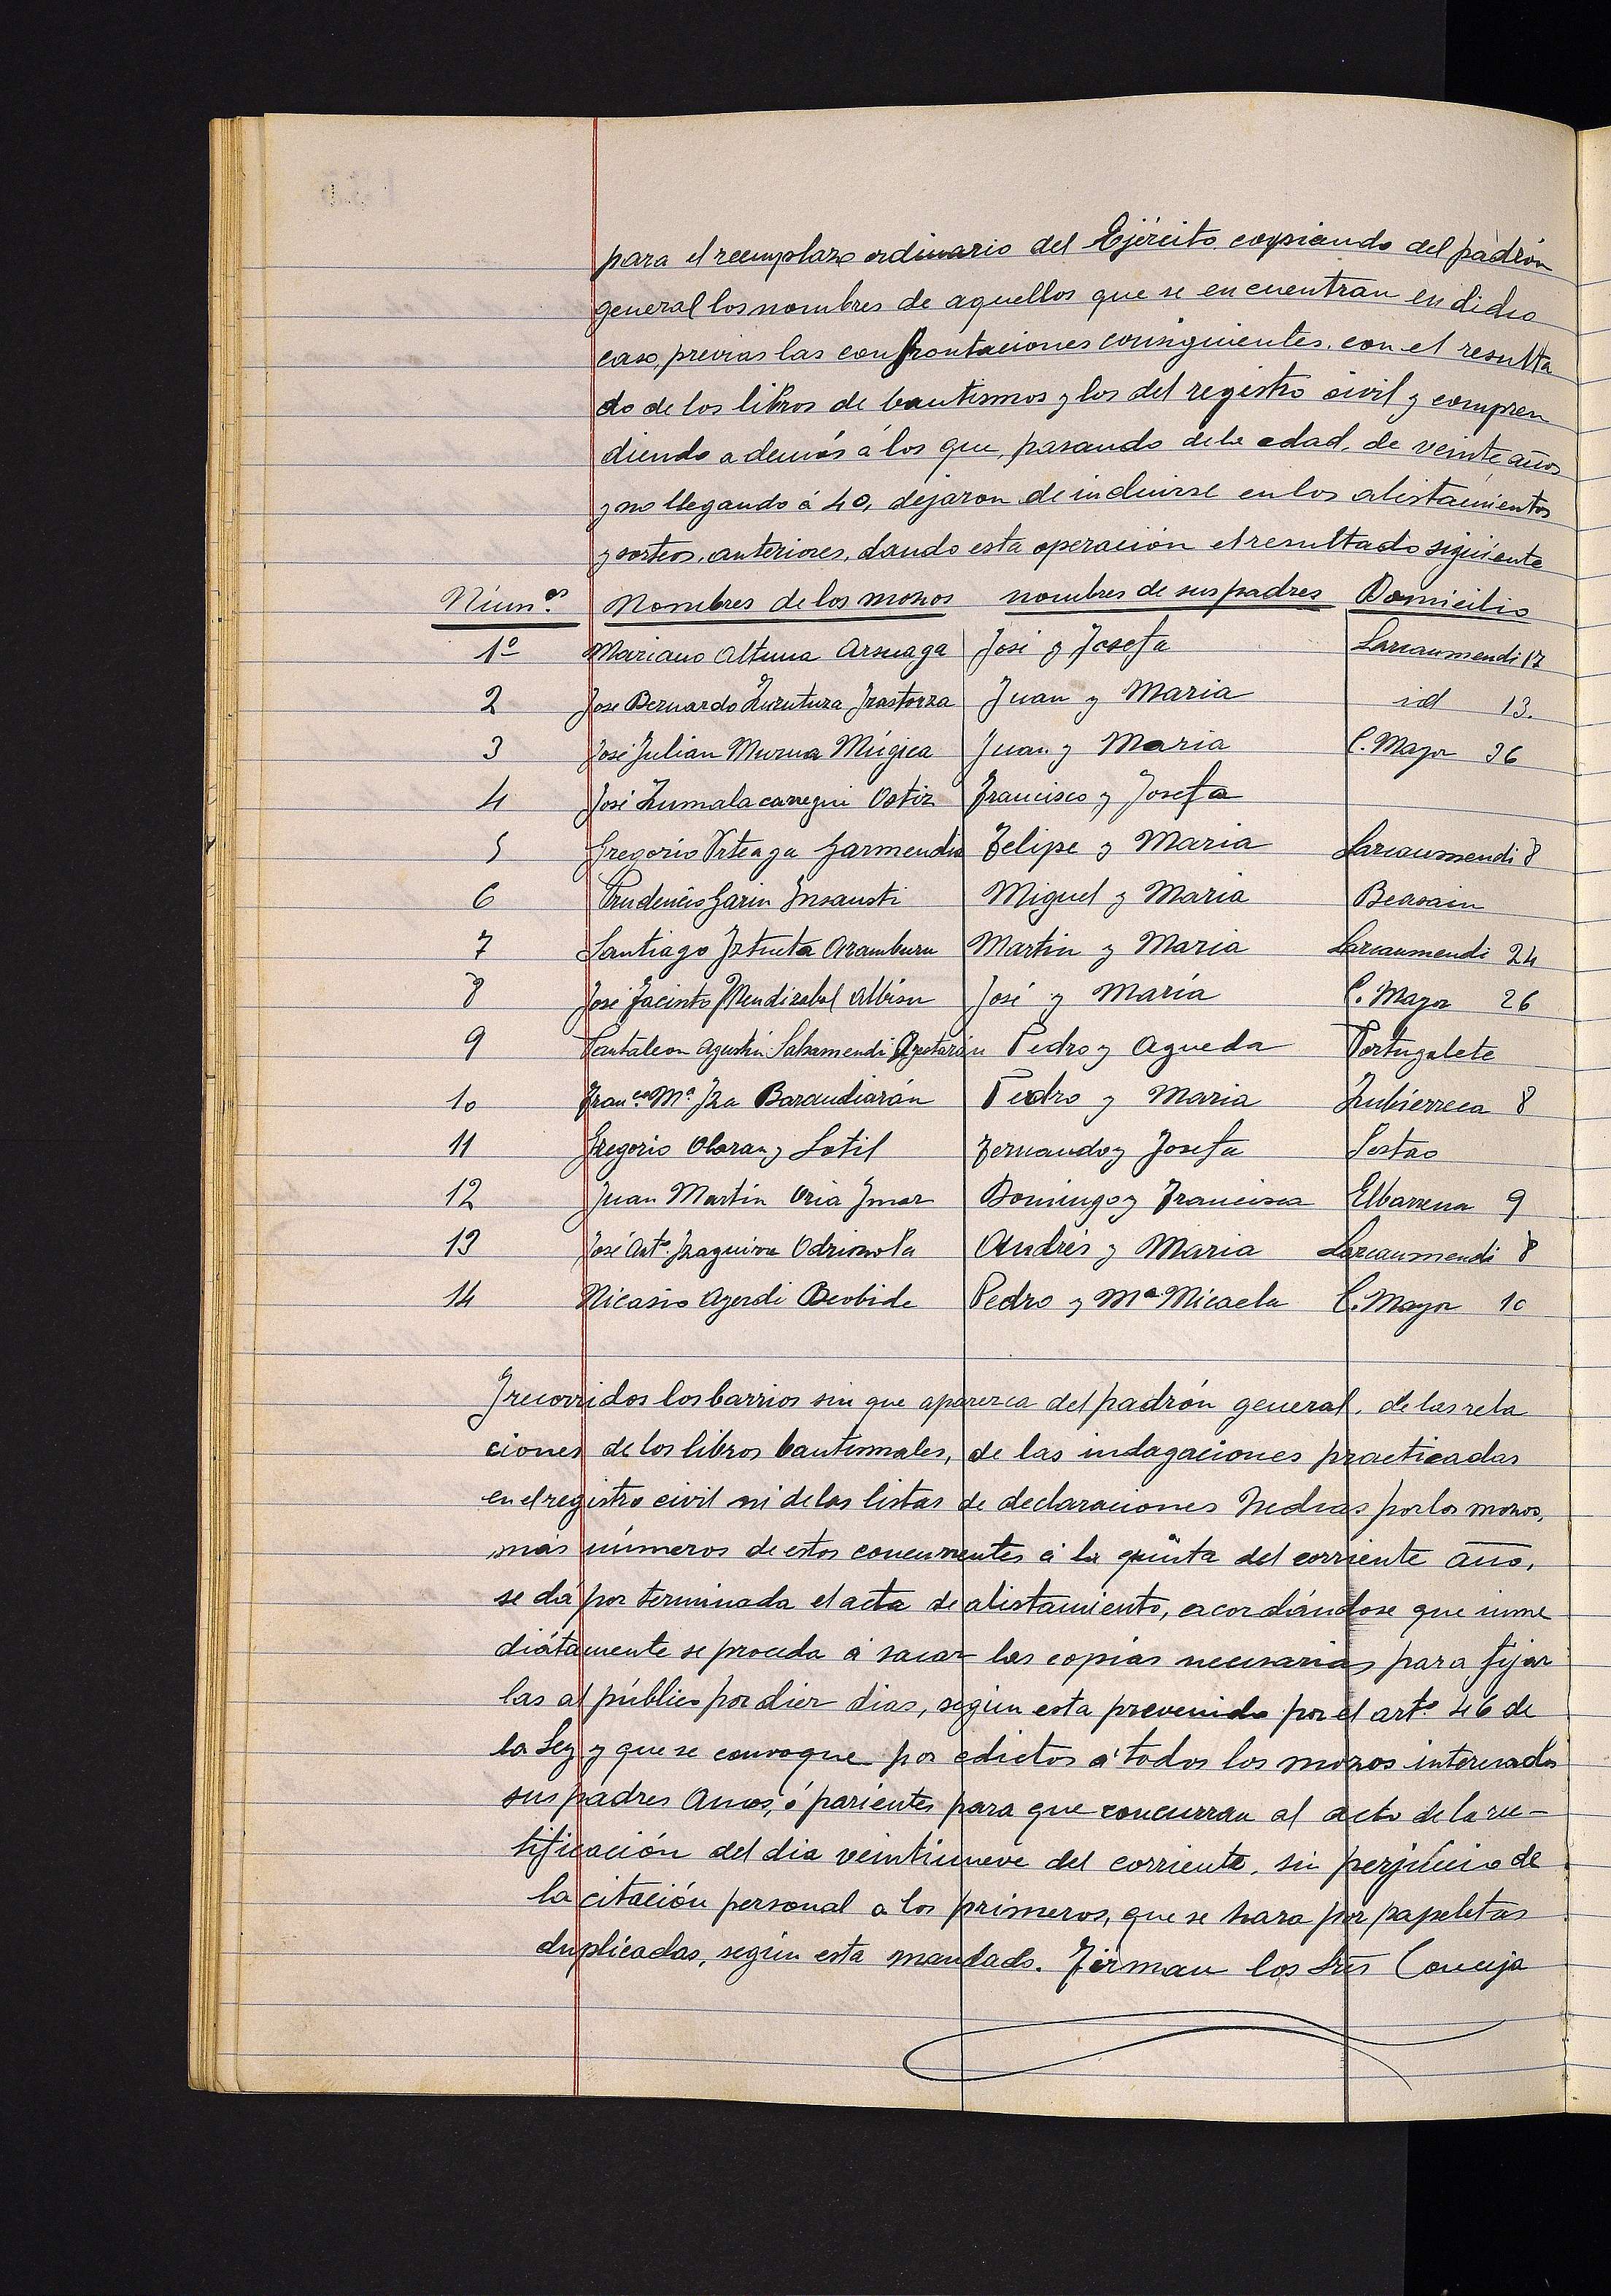 para el reemplazo ordinario del Ejército, copiando del padrón
general los nombres de aquellos que se encuentran en dicho
caso, previas las confrontaciones consiguientes, con el resulta
do de los libros de bautismos y los del registro civil y compren
diendo además á los que, pasando de la edad, de veinte años
y no llegando á 40, dejaron de incluirse en los alistamientos
y sorteos, anteriores, dando esta operación el resultado siguiente
Núm.os Nombres de los mozos nombres de sus padres Domicilio
1º Mariano Altuna Arsuaga José y Josefa Larraumendi 17
2 Jose Bernardo Zurutuza Irastorza Juan y Maria id 13.
3 José Julian Murua Múgica Juan y Maria C. Mayor 36
4 José Zumalacarregui Ostiz Francisco y Josefa
5 Gregorio Urteaga Garmendia Felipe y Maria Larraumendi 8
6 Prudencio Garin Insausti Miguel y Maria Beasain
7 Santiago Iztueta Aramburu Martin y Maria Larraumendi 24
8 José Jacinto Mendizabal Albisu José y María C. Mayor 26
9 Pantaleon Agustin Salsamendi Pedro y Agueda Portugalete
10 Fran.co Mª Iza Barandiarán Pedro y Maria Zubierreca 8
11 Gregorio Olaran y Sotil Fernando y Josefa Sestao
12 Juan Martin Oria Imaz Domingo y Francisca Elbarrena 9
13 José Ant.º Izaguirre Odriozola Andrés y Maria Larraumendi 8
14 Nicasio Ayerdi Beobide Pedro y Mª Micaela C. Mayor 10
Y recorridos los barrios sin que aparezca del padrón general, de las rela
ciones de los libros bautismales, de las indagaciones practicadas
en el registro civil ni de las listas de declaraciones hechas por los mozos,
más números de estos concurrentes á la quinta del corriente año,
se dá por terminada el acta de alistamiento, acordándose que inme
diátamente se proceda á sacar las copias necesarias para fijar
las al público por diez dias, según esta prevenido por el artº 46 de
la Ley y que se convoque por edictos á todos los mozos interesados
sus padres Amos, ó parientes para que concurran al acto de la rec-
tificación del dia veintinueve del corriente, sin perjuicio de
la citación personal a los primeros, que se hara por papeletas
duplicadas, según esta mandado. Firman los Sres Conceja